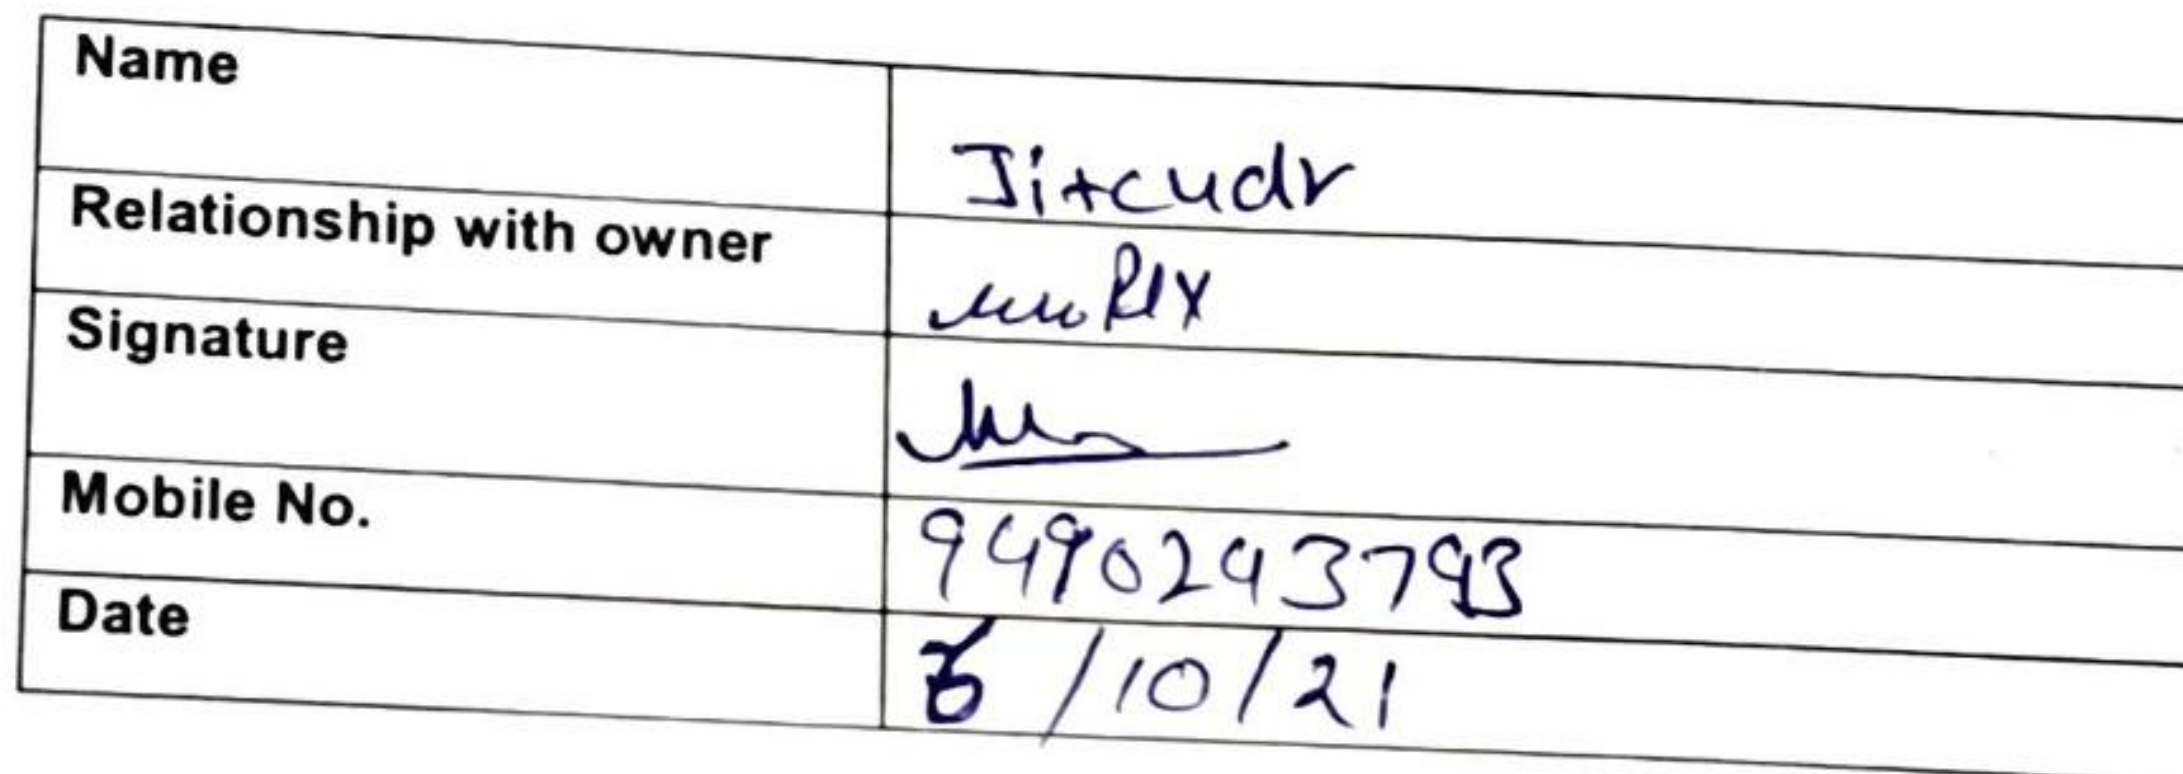 Name
Jitendr
Relationship with owner
Signature
Mobile No.
9490243793
Date
/10/21